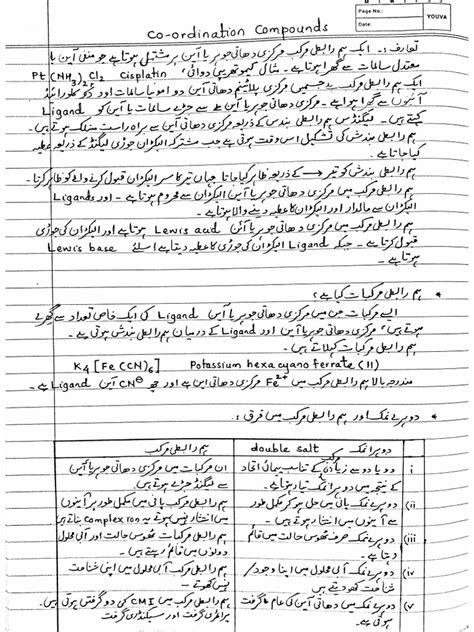 Page No.:
Date:
YOUVA
Co-ordination Compounds
تعارف :- ایک ہم رابطی مرکب مرکزی دھاتی جوہر یا آین پر مشتمل ہوتا ہے جو منفی آین یا
معتدل سالمات سے گھرا ہوتا ہے۔ مثال کیموتھیراپی دوائی، Cisplatin Pt(NH3)2Cl2
ایک ہم رابطی مرکب ہے جسمیں مرکزی پلاٹینم دھاتی آین دو امونیا سالمات اور دو کلورائیڈ
آینوں سے گھرا ہوا ہے۔ مرکزی دھاتی جوہر یا آین سے جڑے سالمات یا آین کو Ligand
کہتے ہیں۔ لیگنڈس ہم رابطی بندش کے ذریعہ مرکزی دھاتی آین سے براہ راست منسلک ہوتے ہیں
ہم رابطی بندش کی تشکیل اس وقت ہوتی ہے جب مشترک الیکڑان جوڑی لیگنڈ کے ذریعہ عطیہ
کیا جاتا ہے۔
ہم رابطی بندش کو تیر → کے ذریعہ ظاہر کیا جاتا جہاں تیر کا سر الیکڑان قبول کرنے والے کو ظاہر کرتا۔
ہم رابطی مرکب میں مرکزی دھاتی جوہر یا آین الیکڑان سے محروم ہوتا ہے۔ اور Ligands
الیکڑان سے مالدار اور الیکڑان کا عطیہ دینے والا ہوتا ہے۔
ہم رابطی مرکب میں مرکزی دھاتی جوہر یا آین Lewis acid ہوتا ہے اور الیکڑان کی جوڑی
قبول کرتا ہے۔ جبکہ Ligand الیکڑان کی جوڑی کا عطیہ دیتا ہے اسلئے Lewis base
ہوتا ہے۔
* ہم رابطی مرکبات کیا ہے؟
ایسے مرکبات جن میں مرکزی دھاتی جوہر یا آین Ligand کی ایک خاص تعداد سے گھرے
ہوتے ہیں، مرکزی دھاتی جوہر یا آین اور Ligand کے درمیان ہم رابطی بندش ہوتی ہے۔
ہم رابطی مرکبات کہلاتے ہیں۔
K4 [Fe (CN)6] Potassium hexacyano ferrate (II)
مندرجہ بالا ہم رابطی مرکب میں Fe2+ مرکزی دھاتی آین ہے اور چھ CN⊖ آین Ligand ہے۔
* دوہرے نمک اور ہم رابطی مرکب میں فرق :-
دوہرا نمک double salt ہم رابطی مرکب
i دو یا دو سے زیادہ کے تناسب پیمائی اتحاد ان مرکبات میں مرکزی دھاتی جوہر یا آین
کے نتیجہ میں دوہرا نمک تیار ہوتا ہے۔ سے لیگنڈ جڑے ہوتے ہیں۔
ii) دوہرے نمک پانی میں حل ہو کر مکمل طور ہم رابطی مرکب پانی میں مکمل طور پر آینوں
سے آینوں میں ہوتے ہیں۔ میں نہیں ہوتے یہ complex ion بناتے ہیں
iii) دوہرے نمک صرف ٹھوس حالت میں قائم ہم رابطی مرکب ٹھوس حالت اور آبی محلول
ہوتا ہے۔ دونوں میں قائم رہتے ہیں۔
iv) دوہرے نمک آبی محلول میں اپنا وجود / ہم رابطی مرکب آبی محلول میں اپنی شناخت
شناخت کھو دیتے ہیں نہیں کھوتے۔
v) دوہرے نمک میں دھاتی آین کی عام گرفت ہم رابطی مرکب میں CMI کی دو گرفتیں ہوتی ہیں۔
ہوتی ہے۔ پرائمری گرفت اور سیکنڈری گرفت